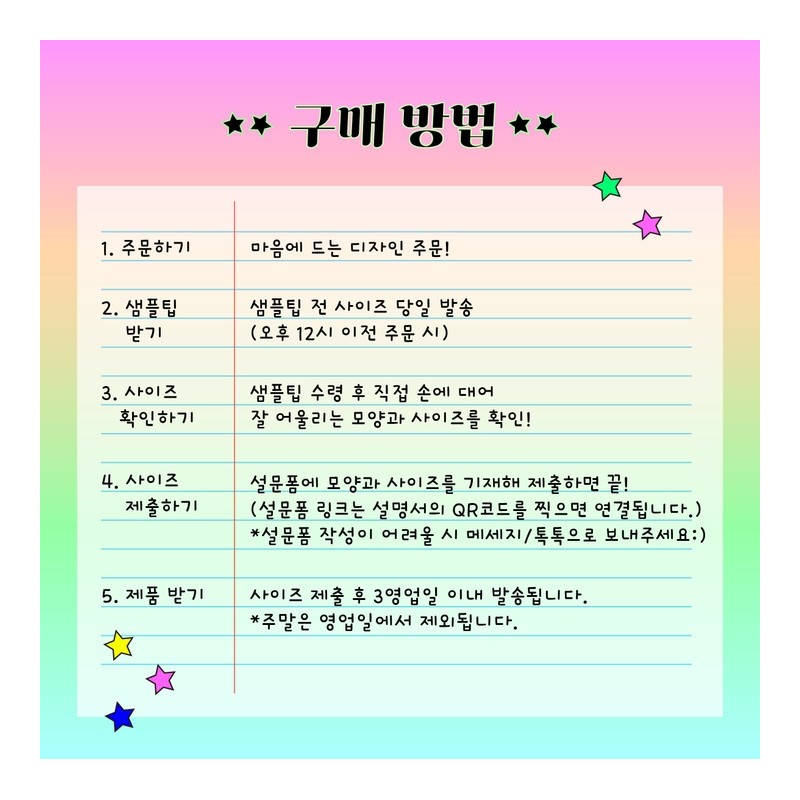 구매 방법
1. 주문하기
마음에 드는 디자인 주문!
2. 샘플팁
받기
샘플팁 전 사이즈 당일 발송
(오후 12시 이전 주문 시)
3. 사이즈
확인하기
샘플팁 수령 후 직접 손에 대어
잘 어울리는 모양과 사이즈를 확인!
4. 사이즈
제출하기
설문폼에 모양과 사이즈를 기재해 제출하면 끝!
(설문폼 링크는 설명서의 QR코드를 찍으면 연결됩니다.)
*설문폼 작성이 어려울 시 메세지/톡톡으로 보내주세요:)
5. 제품 받기
사이즈 제출 후 3영업일 이내 발송됩니다.
*주말은 영업일에서 제외됩니다.